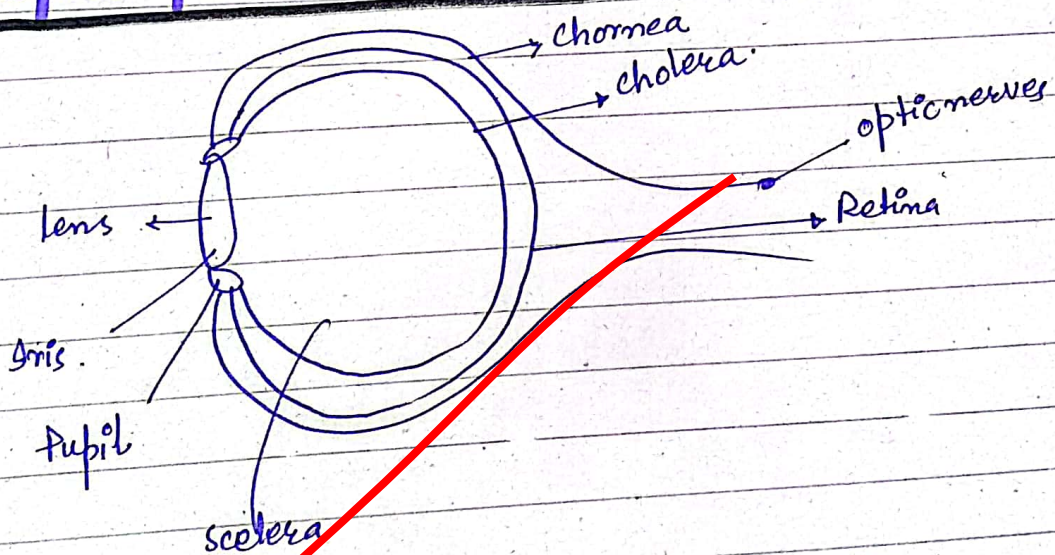 Chornea
Cholera.
optic nerves
lens
Retina
Iris.
Pupil
Scelera